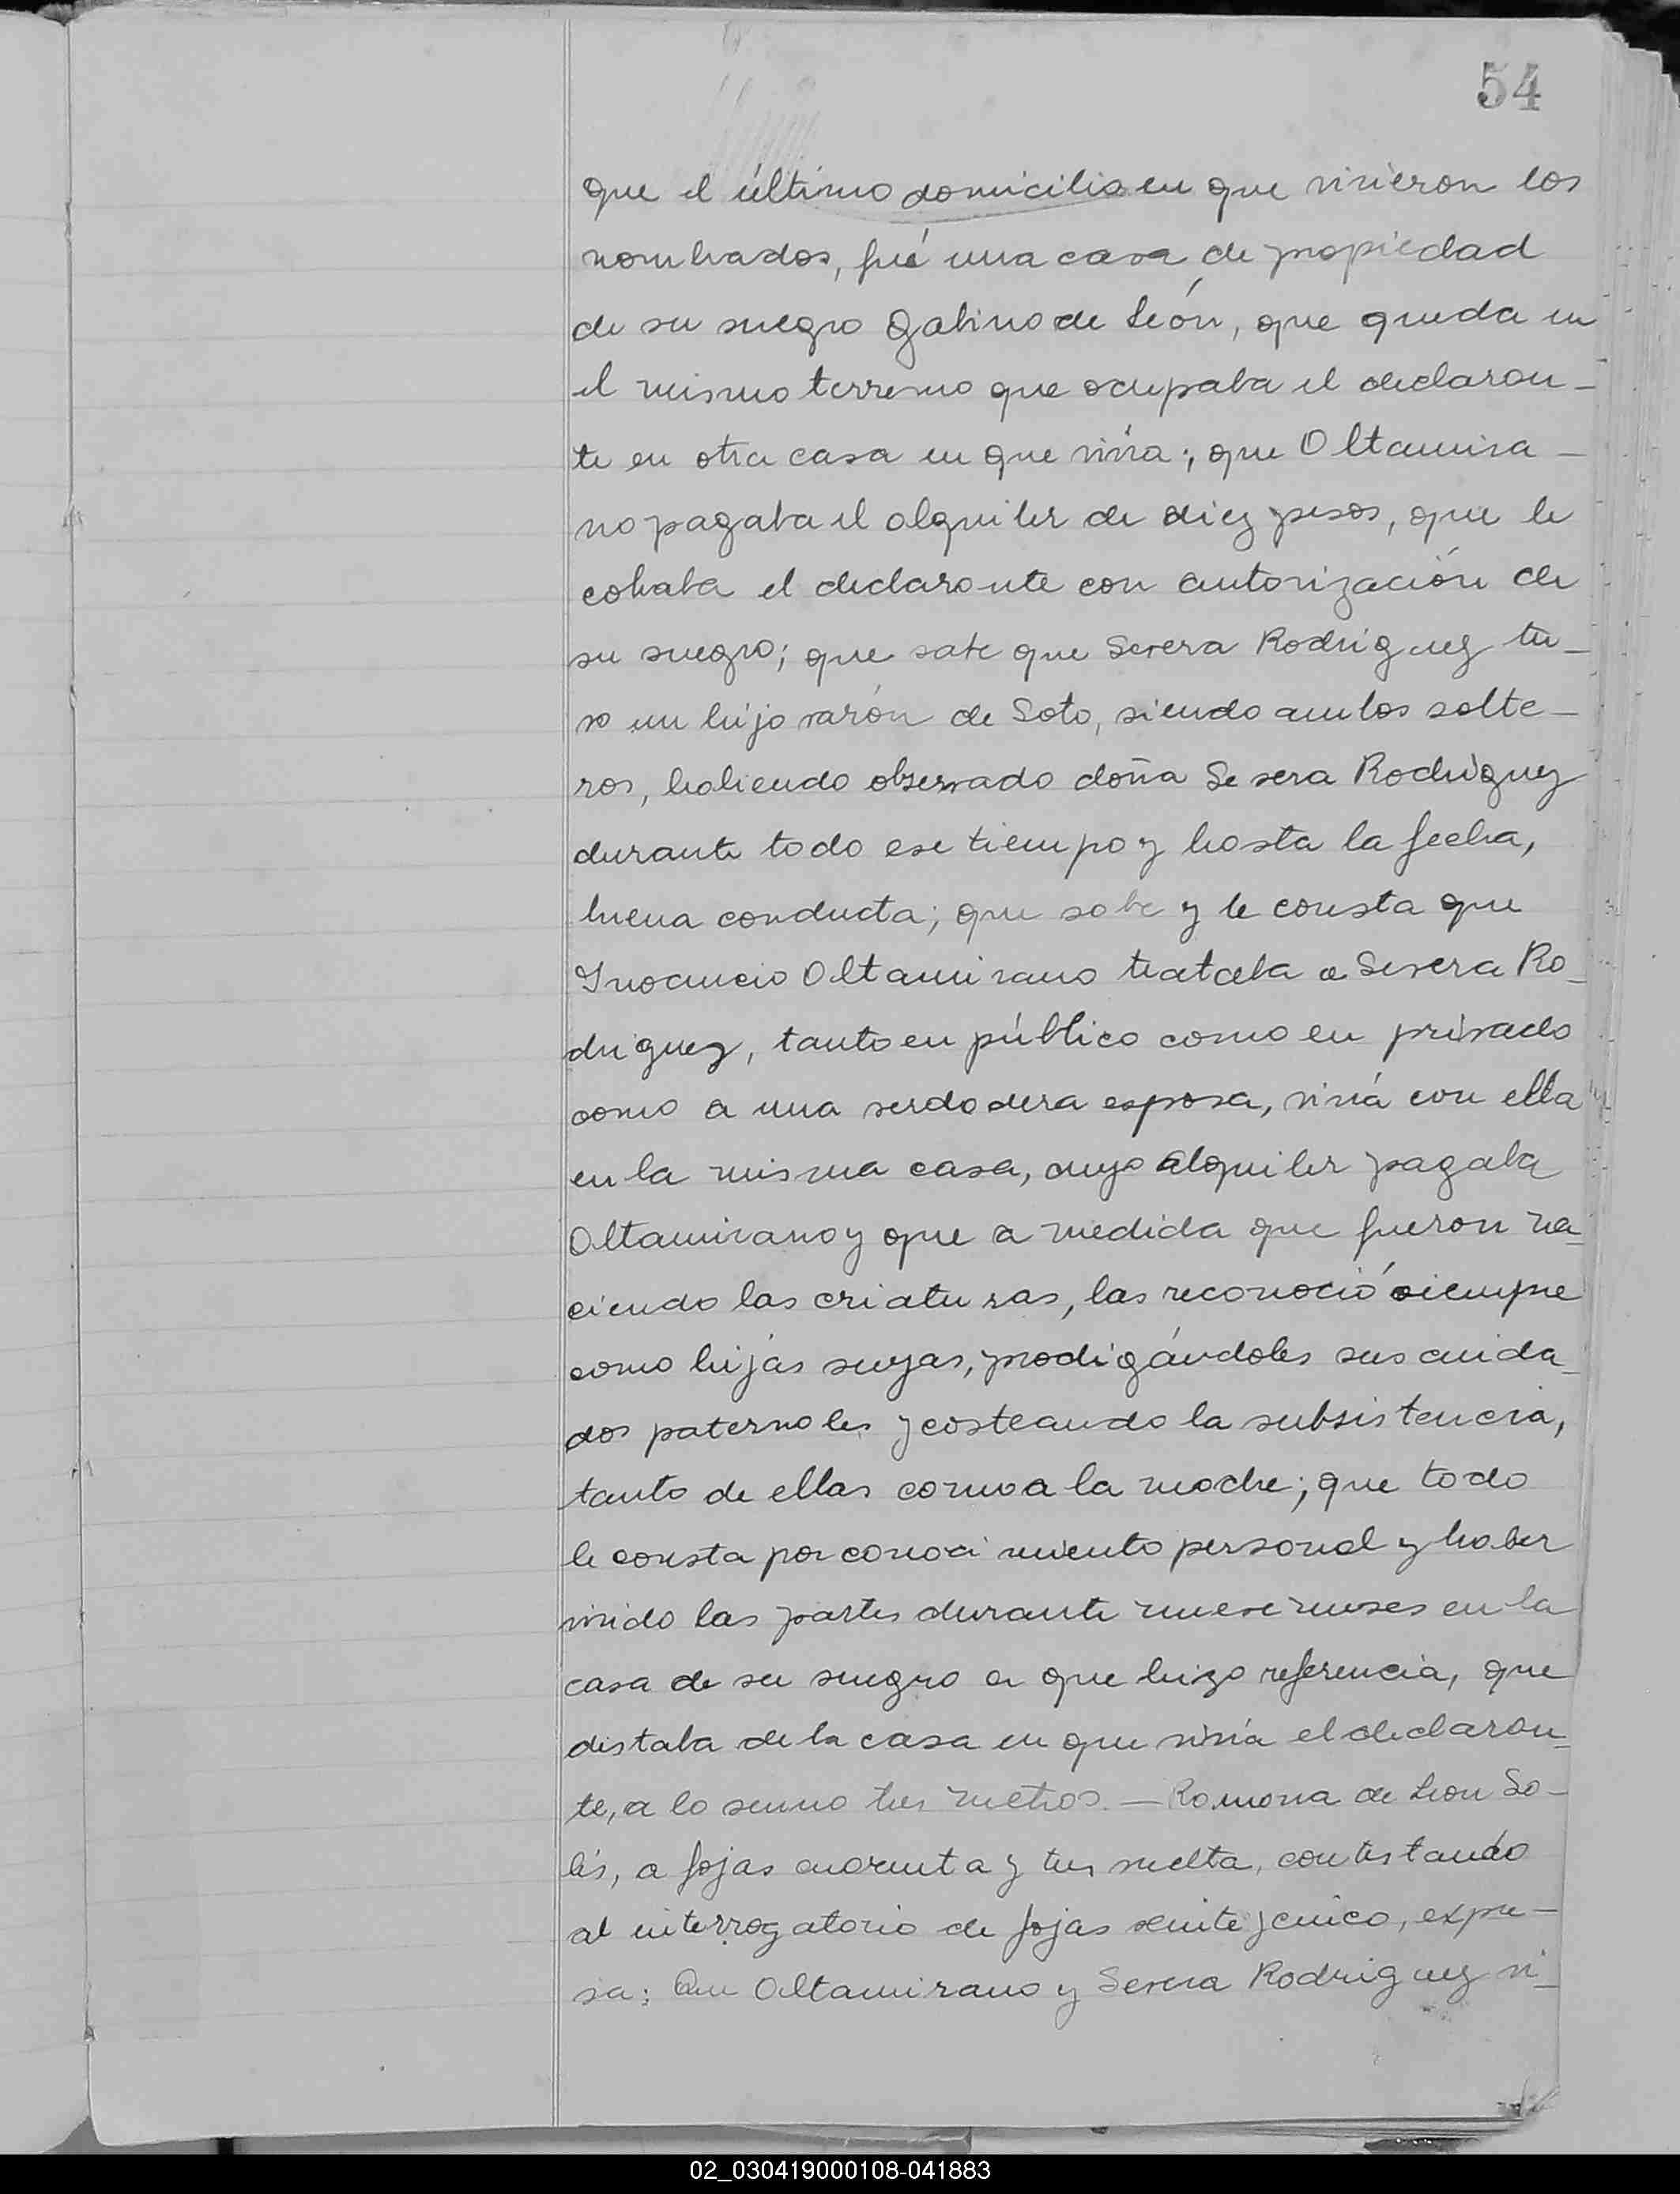 54
que el último domicilio en que vivieron los
nombrados, fué una casa de propiedad
de su suegro Gabino de León, que queda en
el mismo terreno que ocupaba el declaran-
te en otra casa en que vivía; que Altamira-
no pagaba el alquiler de diez pesos, que le
cobraba el declarante con autorización de
su suegro; que sabe que Severa Rodriguez tu-
vo un hijo varón de Soto, siendo ambos solte-
ros, habiendo observado doña Severa Rodriguez
durante todo ese tiempo y hasta la fecha,
buena conducta; que sabe y le consta que
Inocencio Altamirano trataba a Severa Ro-
driguez, tanto en público como en privado
como a una verdadera esposa, vivía con ella
en la misma casa, cuyo alquiler pagaba
Altamirano y que a medida que fueron na-
ciendo las criaturas, las reconoció siempre
como hijas suyas, prodigándoles sus cuida-
dos paternales y costeando la subsistencia,
tanto de ellas como a la madre; que todo
le consta por conocimiento personal y haber
vivido las partes durante nueve meses en la
casa de su suegro a que hizo referencia, que
distaba de la casa en que vivía el declaran-
te, a lo sumo tres metros. — Ramona de Leon So-
lis, a fojas cuarenta y tres vuelta, contestando
al interrogatorio de fojas veinte y cinco, expre-
sa: Que Altamirano y Severa Rodriguez vi-
02_030419000108-041883